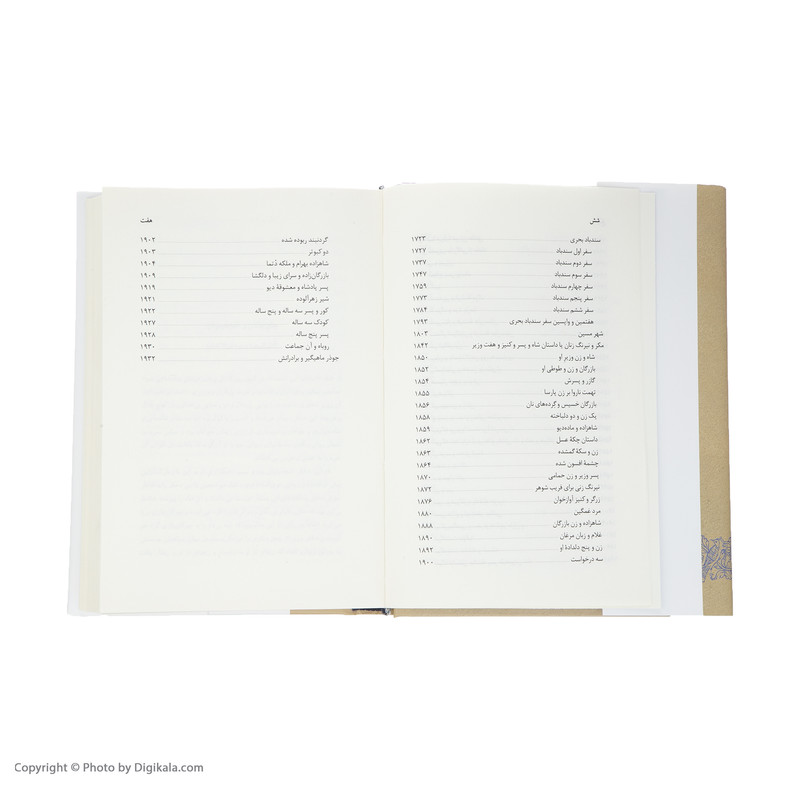 شش
سندباد بحری ۱۷۲۳
سفر اول سندباد ۱۷۲۷
سفر دوم سندباد ۱۷۳۷
سفر سوم سندباد ۱۷۴۷
سفر چهارم سندباد ۱۷۵۹
سفر پنجم سندباد ۱۷۷۳
سفر ششم سندباد ۱۷۸۴
هفتمین و واپسین سفر سندباد بحری ۱۷۹۳
شهر مسین ۱۸۰۳
مکر و نیرنگ زنان یا داستان شاه و پسر و کنیز و هفت وزیر ۱۸۴۲
شاه و زن وزیر او ۱۸۵۰
بازرگان و زن و طوطی او ۱۸۵۲
گازر و پسرش ۱۸۵۴
تهمت ناروا بر زن پارسا ۱۸۵۵
بازرگان خسیس و گرده‌های نان ۱۸۵۶
یک زن و دو دلباخته ۱۸۵۸
شاهزاده و ماده‌دیو ۱۸۵۹
داستان چکهٔ عسل ۱۸۶۲
زن و سکهٔ گمشده ۱۸۶۳
چشمهٔ افسون شده ۱۸۶۴
پسر وزیر و زن حمامی ۱۸۷۰
نیرنگ زنی برای فریب شوهر ۱۸۷۲
زرگر و کنیز آوازخوان ۱۸۷۶
مرد غمگین ۱۸۸۰
شاهزاده و زن بازرگان ۱۸۸۸
غلام و زبان مرغان ۱۸۹۰
زن و پنج دلدادهٔ او ۱۸۹۲
سه درخواست ۱۹۰۰
هفت
گردنبند ربوده شده ۱۹۰۲
دو کبوتر ۱۹۰۳
شاهزاده بهرام و ملکه دُتما ۱۹۰۴
بازرگان‌زاده و سرای زیبا و دلگشا ۱۹۰۹
پسر پادشاه و معشوقهٔ دیو ۱۹۱۹
شیر زهرآلوده ۱۹۲۱
کور و پسر سه ساله و پنج ساله ۱۹۲۲
کودک سه ساله ۱۹۲۷
پسر پنج ساله ۱۹۲۸
روباه و آن جماعت ۱۹۳۰
جودر ماهیگیر و برادرانش ۱۹۳۲
Copyright © Photo by Digikala.com